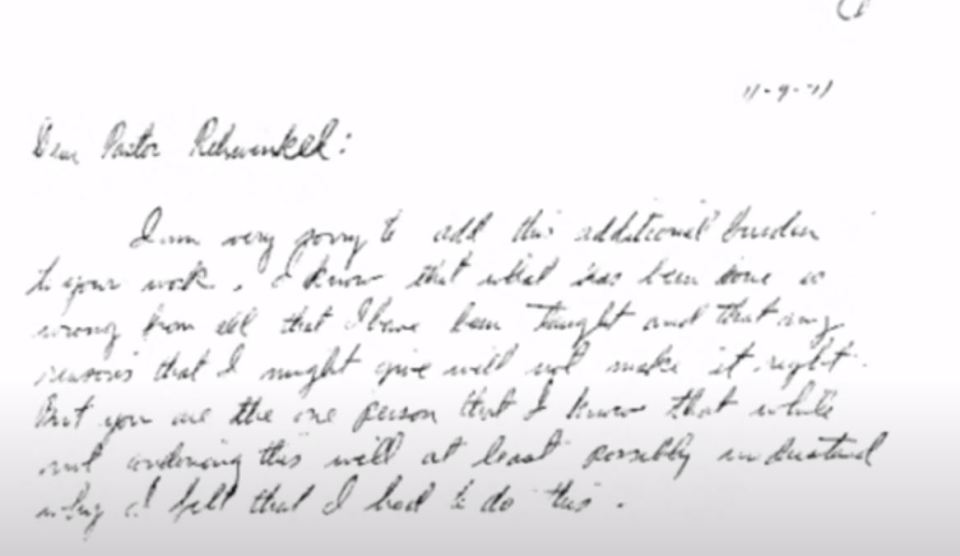 11-9-71
Dear Pastor Rehwinkel:
I am very sorry to add this additional burden
to your work. I know that what has been done is
wrong from all that I have been taught and that any
reasons that I might give will not make it right.
But you are the one person that I know that while
not condoning this will at least possibly understand
why I felt that I had to do this.